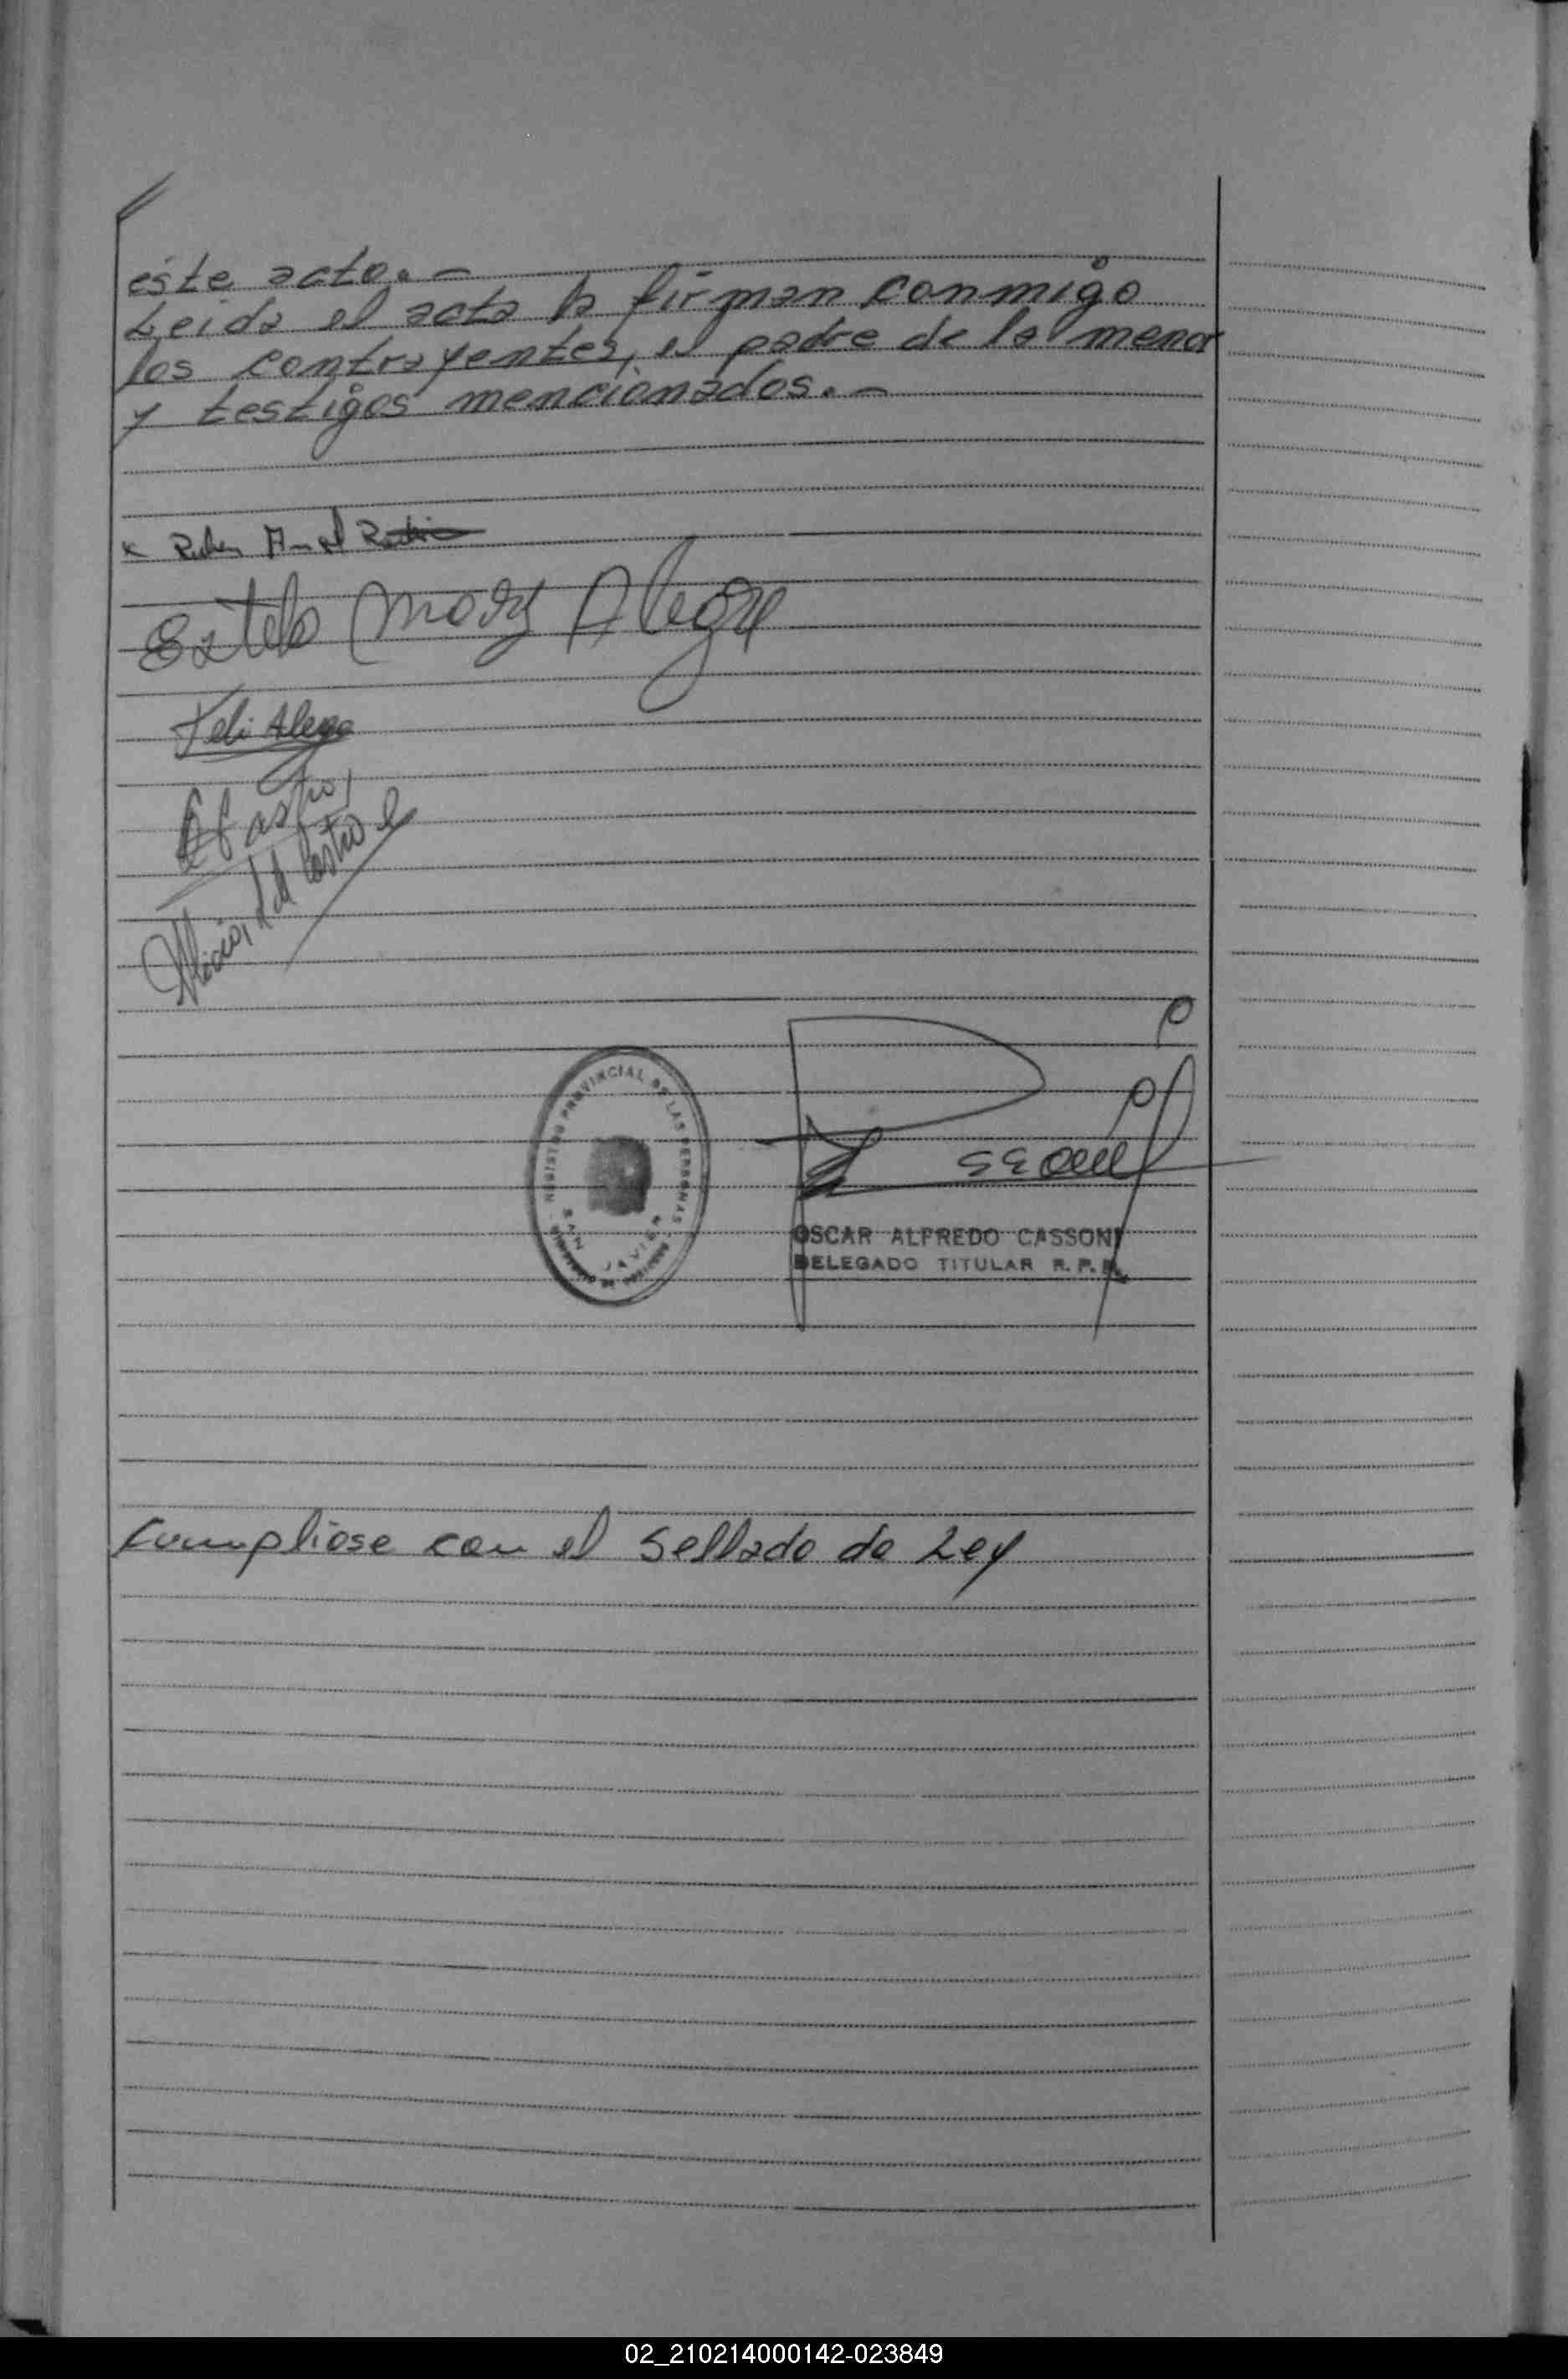 este acto.-
Leida el acta la firman conmigo
los contrayentes, el padre de la menor
y testigos mencionados.-
Estela Mary Alegre
Feli Alegre
Castro
Alicia del Castro
REGISTRO PROVINCIAL DE LAS PERSONAS
SAN JAVIER
OSCAR ALFREDO CASSONI
DELEGADO TITULAR R. P. P.
Cumpliose con el sellado de Ley
02_210214000142-023849